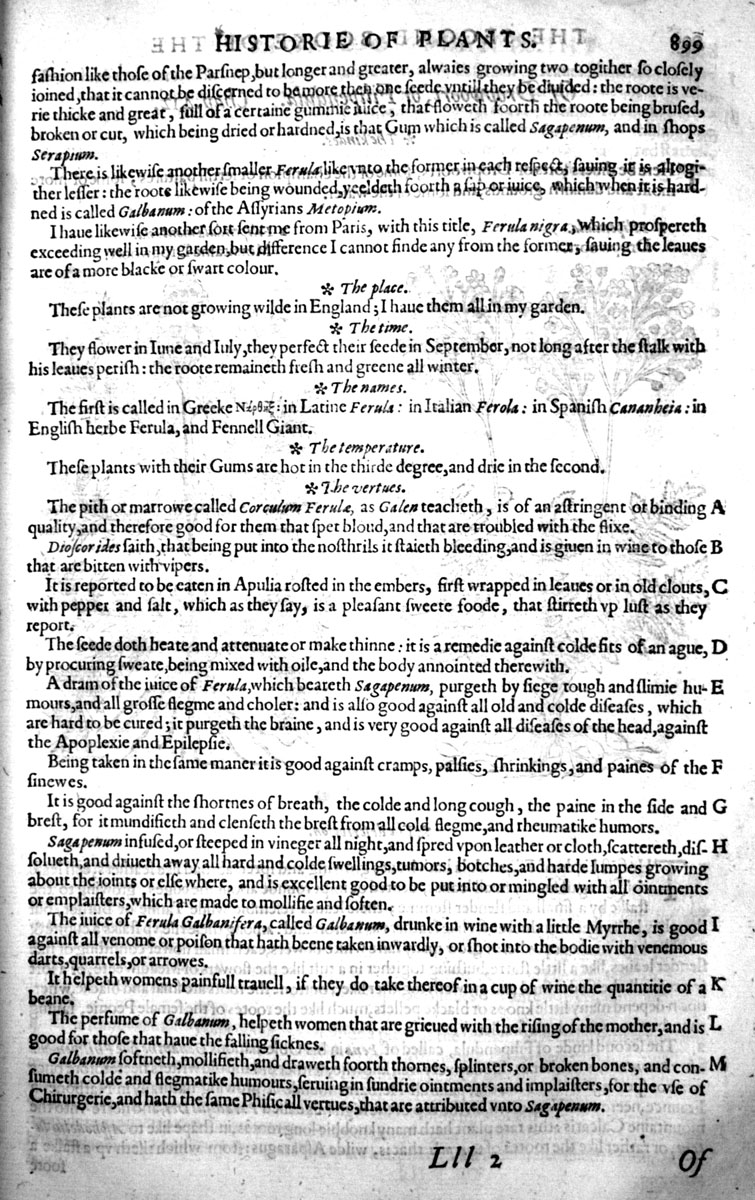 HISTORIE OF PLANTS. 899
faſhion like thoſe of the Parſnep, but longer and greater, alwaies growing two togither ſo cloſely
ioined, that it cannot be diſcerned to be more then one ſeede vntill they be diuided: the roote is ve-
rie thicke and great, full of a certaine gummie iuice, that floweth foorth the root being bruſed,
broken or cut, which being dried or hardned, is that Gum which is called Sagapenum, and in ſhops
Serapium.
There is likewiſe another ſmaller Ferula, like vnto the former in each reſpect, ſauing it is altogi-
ther leſſer: the roote likewiſe being wounded, yeeldeth foorth a ſap or iuice, which when it is hard-
ned is called Galbanum: of the Aſſyrians Metopium.
I haue likewiſe another ſort ſent me from Paris, with this title, Ferula nigra, which proſpereth
exceeding well in my garden, but difference I cannot finde any from the former, ſauing the leaues
are of a more blacke or ſwart colour.
✻ The place.
Theſe plants are not growing wilde in England; I haue them all in my garden.
✻ The time.
They flower in Iune and Iuly, they perfect their ſeede in September, not long after the ſtalk with
his leaues periſh: the roote remaineth freſh and greene all winter.
✻ The names.
The firſt is called in Greeke Νάρθηξ: in Latine Ferula: in Italian Ferola: in Spaniſh Cananheia: in
Engliſh herbe Ferula, and Fennell Giant.
✻ The temperature.
Theſe plants with their Gums are hot in the thirde degree, and drie in the ſecond.
✻ The vertues.
The pith or marrowe called Corculum Ferulæ, as Galen teacheth, is of an aſtringent or binding A
quality, and therefore good for them that ſpet bloud, and that are troubled with the flixe.
Dioſcorides ſaith, that being put into the noſthrils it ſtaieth bleeding, and is giuen in wine to thoſe B
that are bitten with vipers.
It is reported to be eaten in Apulia roſted in the embers, firſt wrapped in leaues or in old clouts, C
with pepper and ſalt, which as they ſay, is a pleaſant ſweete foode, that ſtirreth vp luſt as they
report.
The ſeede doth heate and attenuate or make thinne: it is a remedie againſt colde fits of an ague, D
by procuring ſweate, being mixed with oile, and the body annointed therewith.
A dram of the iuice of Ferula, which beareth Sagapenum, purgeth by ſiege tough and ſlimie hu- E
mours, and all groſſe flegme and choler: and is alſo good againſt all old and colde diſeaſes, which
are hard to be cured; it purgeth the braine, and is very good againſt all diſeaſes of the head, againſt
the Apoplexie and Epilepſie.
Being taken in the ſame maner it is good againſt cramps, palſies, ſhrinkings, and paines of the F
ſinewes.
It is good againſt the ſhortnes of breath, the colde and long cough, the paine in the ſide and G
breſt, for it mundifieth and clenſeth the breſt from all cold flegme, and rheumatike humors.
Sagapenum infuſed, or ſteeped in vineger all night, and ſpred vpon leather or cloth, ſcattereth, diſ- H
ſolueth, and driueth away all hard and colde ſwellings, tumors, botches, and harde lumpes growing
about the ioints or elſe where, and is excellent good to be put into or mingled with all ointments
or emplaiſters, which are made to mollifie and ſoften.
The iuice of Ferula Galbanifera, called Galbanum, drunke in wine with a little Myrrhe, is good I
againſt all venome or poiſon that hath beene taken inwardly, or ſhot into the bodie with venemous
darts, quarrels, or arrowes.
It helpeth womens painfull trauell, if they do take thereof in a cup of wine the quantitie of a K
beane.
The perfume of Galbanum, helpeth women that are grieued with the riſing of the mother, and is L
good for thoſe that haue the falling ſicknes.
Galbanum ſoftneth, mollifieth, and draweth foorth thornes, ſplinters, or broken bones, and con- M
ſumeth colde and flegmatike humours, ſeruing in ſundrie ointments and implaiſters, for the vſe of
Chirurgerie, and hath the ſame Phiſicall vertues, that are attributed vnto Sagapenum.
Lll 2 Of